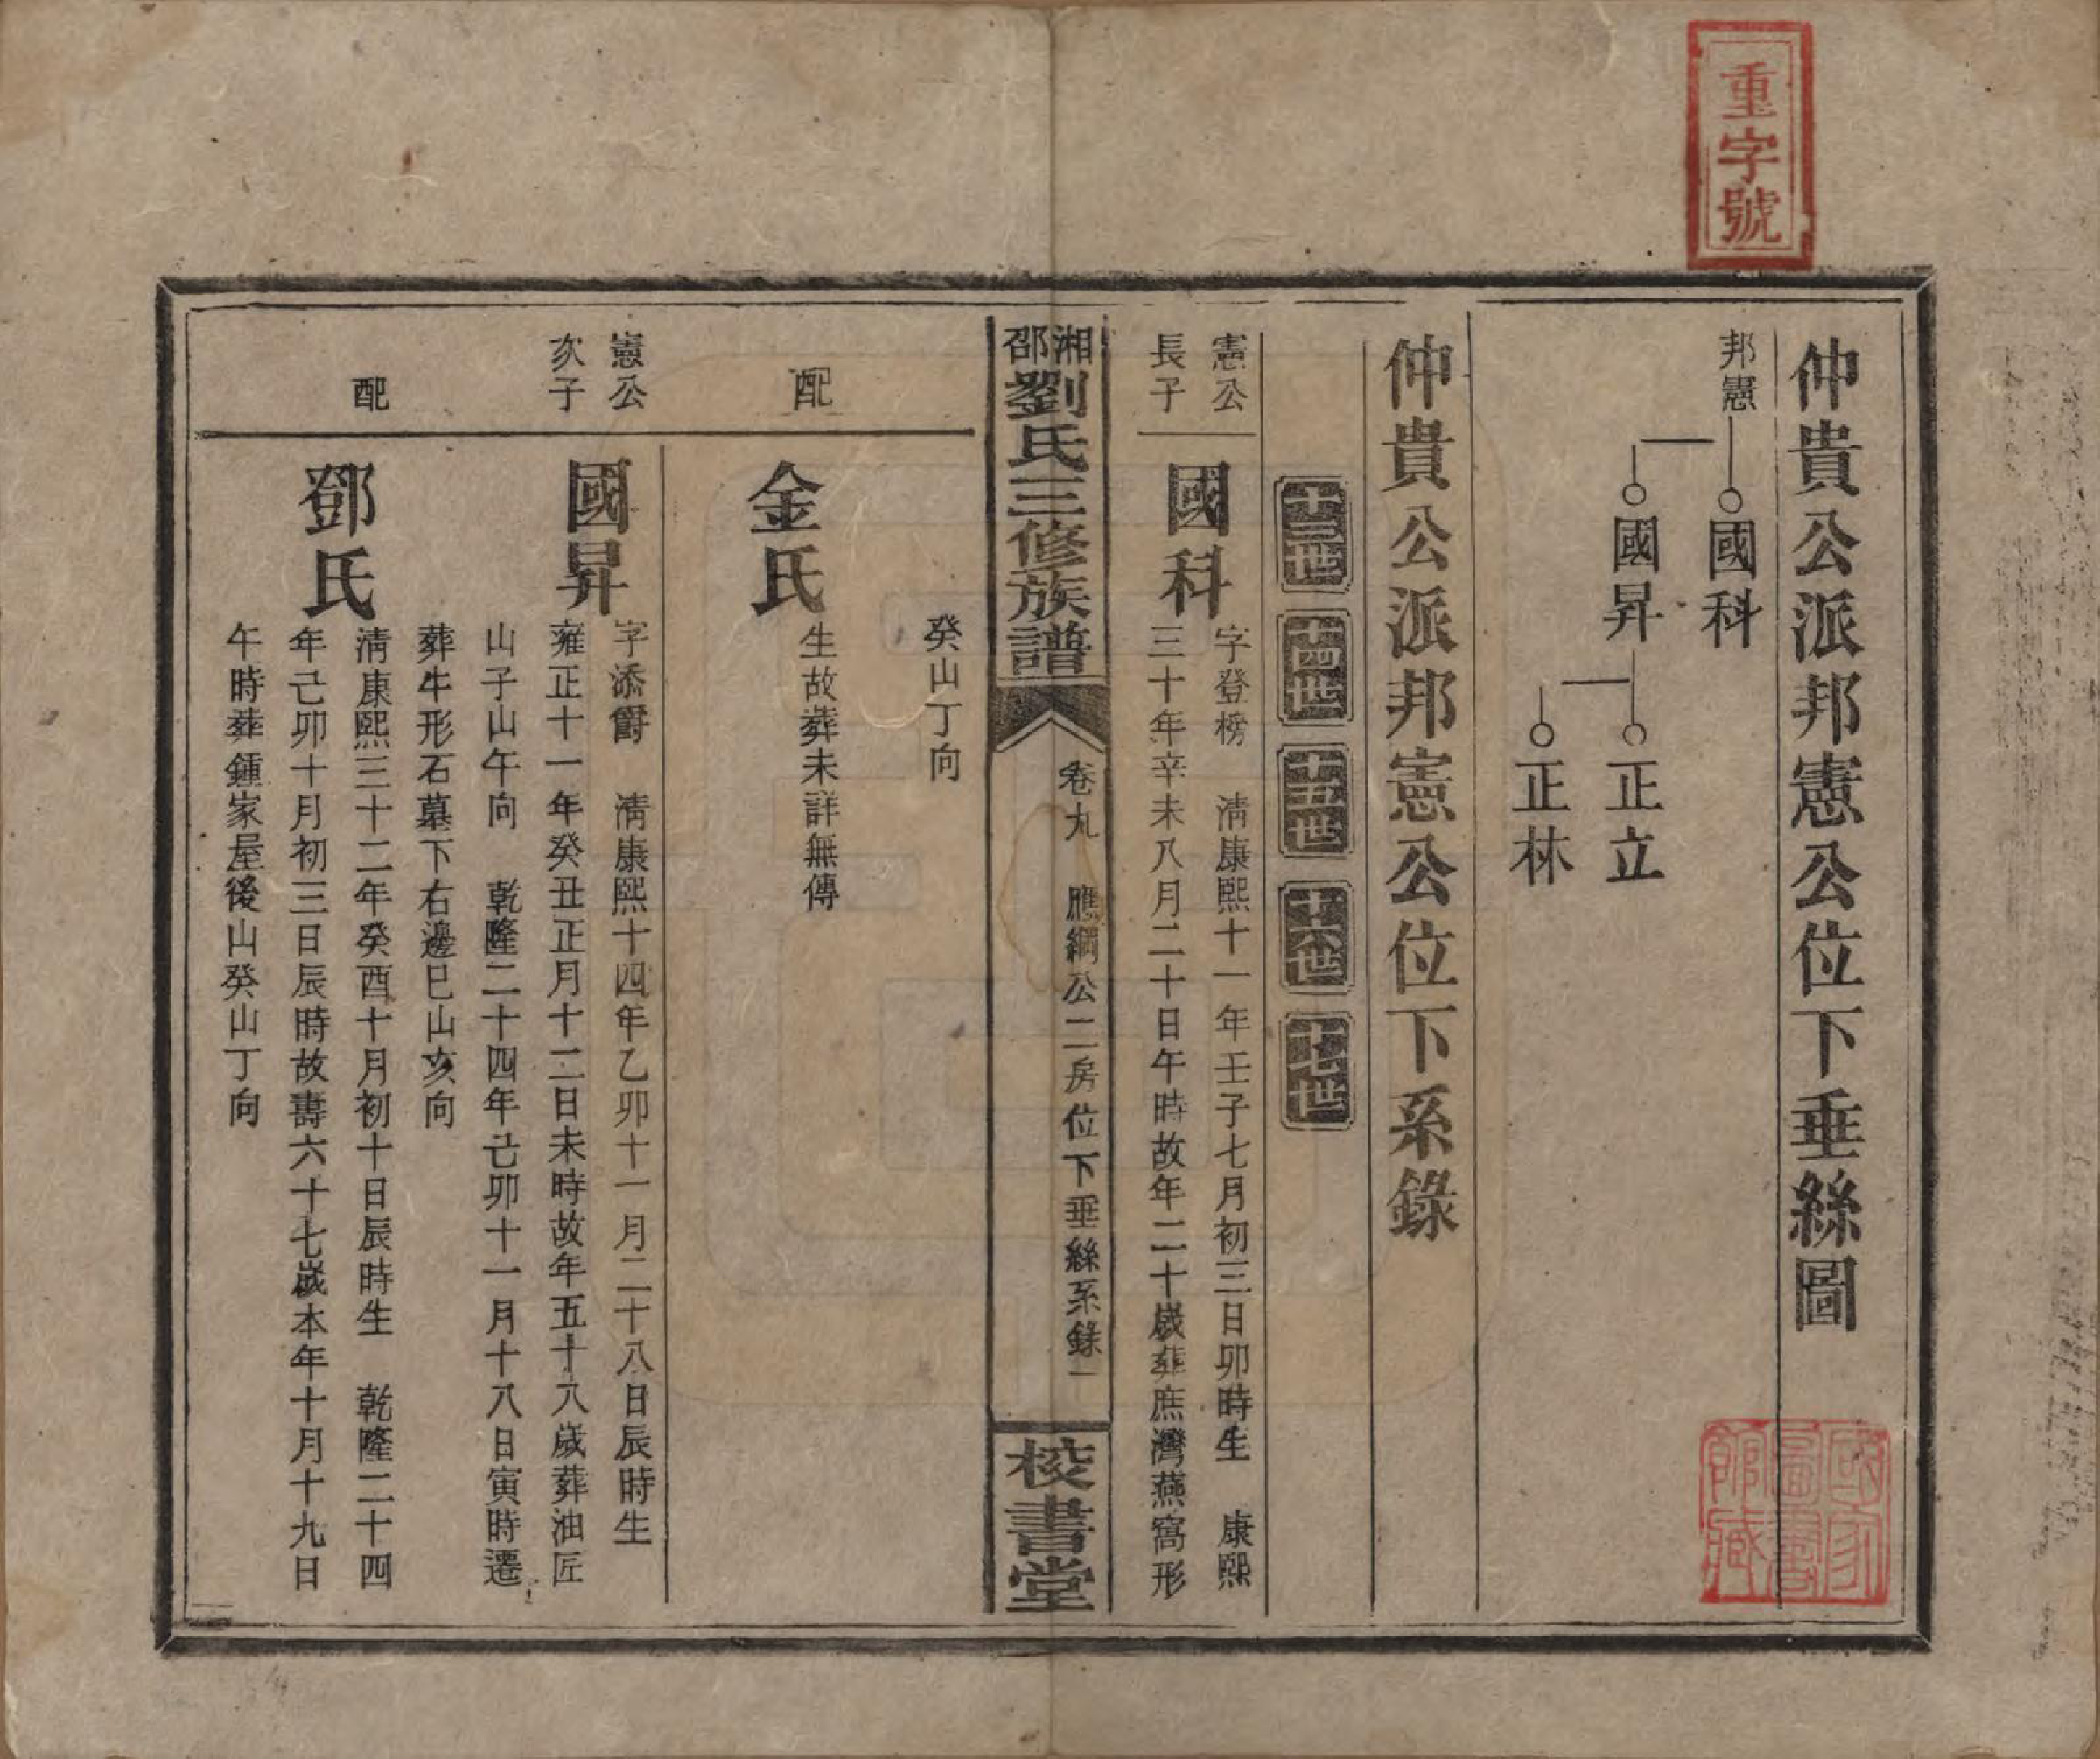 重字號
仲貴公派邦憲公位下垂絲圖
邦憲
國科
國昇
正立
正林
仲貴公派邦憲公位下系錄
十三世 十四世 十五世 十六世 十七世
憲公
長子
國科
字登榜　清康熙十一年壬子七月初三日卯時生　康熙
三十年辛未八月二十日午時故年二十歲葬庶灣燕窩形
湘邵劉氏三修族譜
卷九　應綱公二房位下垂絲系錄　一
校書堂
癸山丁向
配
金氏
生故葬未詳無傳
憲公
次子
國昇
字添爵　清康熙十四年乙卯十一月二十八日辰時生
雍正十一年癸丑正月十二日未時故年五十八歲葬油匠
山子山午向　乾隆二十四年己卯十一月十八日寅時遷
葬牛形石墓下右邊巳山亥向
配
鄧氏
清康熙三十二年癸酉十月初十日辰時生　乾隆二十四
年己卯十月初三日辰時故壽六十七歲本年十月十九日
午時葬鍾家屋後山癸山丁向
國家圖書館藏